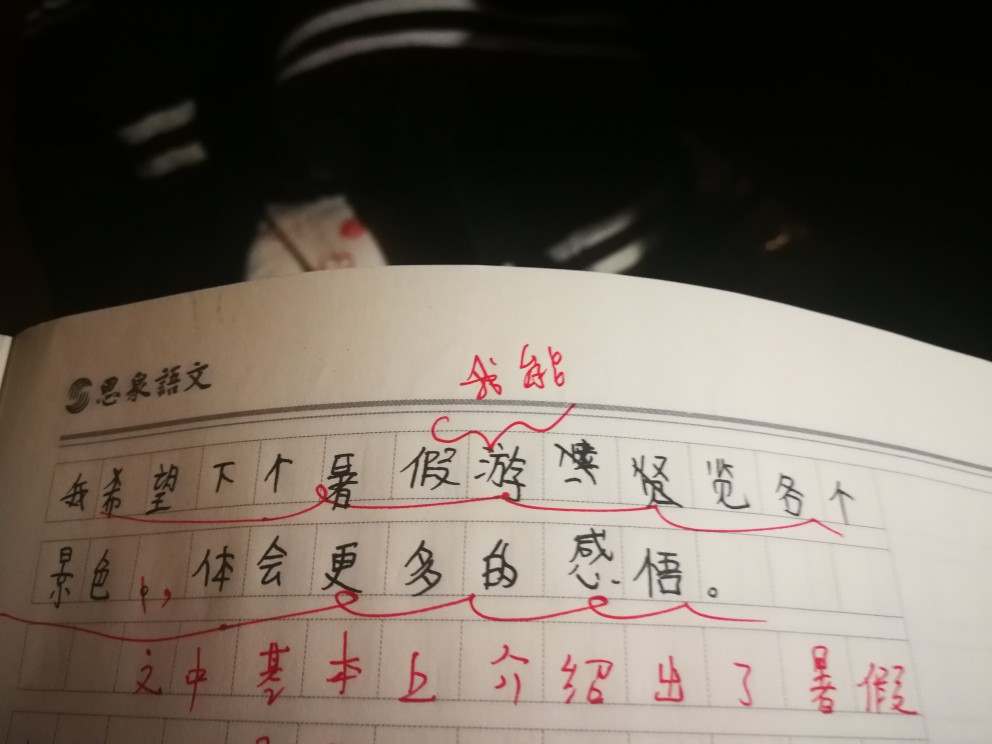 思泉語文
我能
我希望下个暑假游览各个
景色,体会更多的感悟。
文中基本上介绍出了暑假